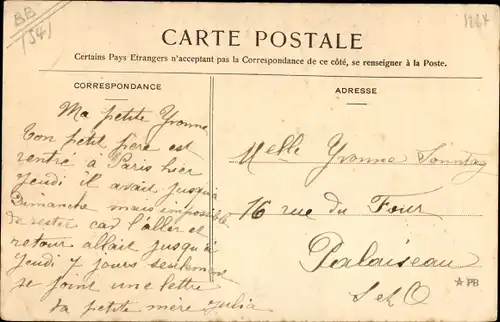 BB
1541
1264
CARTE POSTALE
Certains Pays Etrangers n'acceptant pas la Correspondance de ce côté, se renseigner à la Poste.
CORRESPONDANCE
Ma petite Yvonne
Ton petit père est
rentré à Paris hier
Jeudi il avait jusqu'à
Dimanche mais impossible
de rester car l'aller et
retour allait jusqu'à
Jeudi 7 jours seulement
je joint une lettre
ta petite mère Julia
ADRESSE
Melle Yvonne Sonntag
16 rue du Four
Palaiseau
S et O
PB